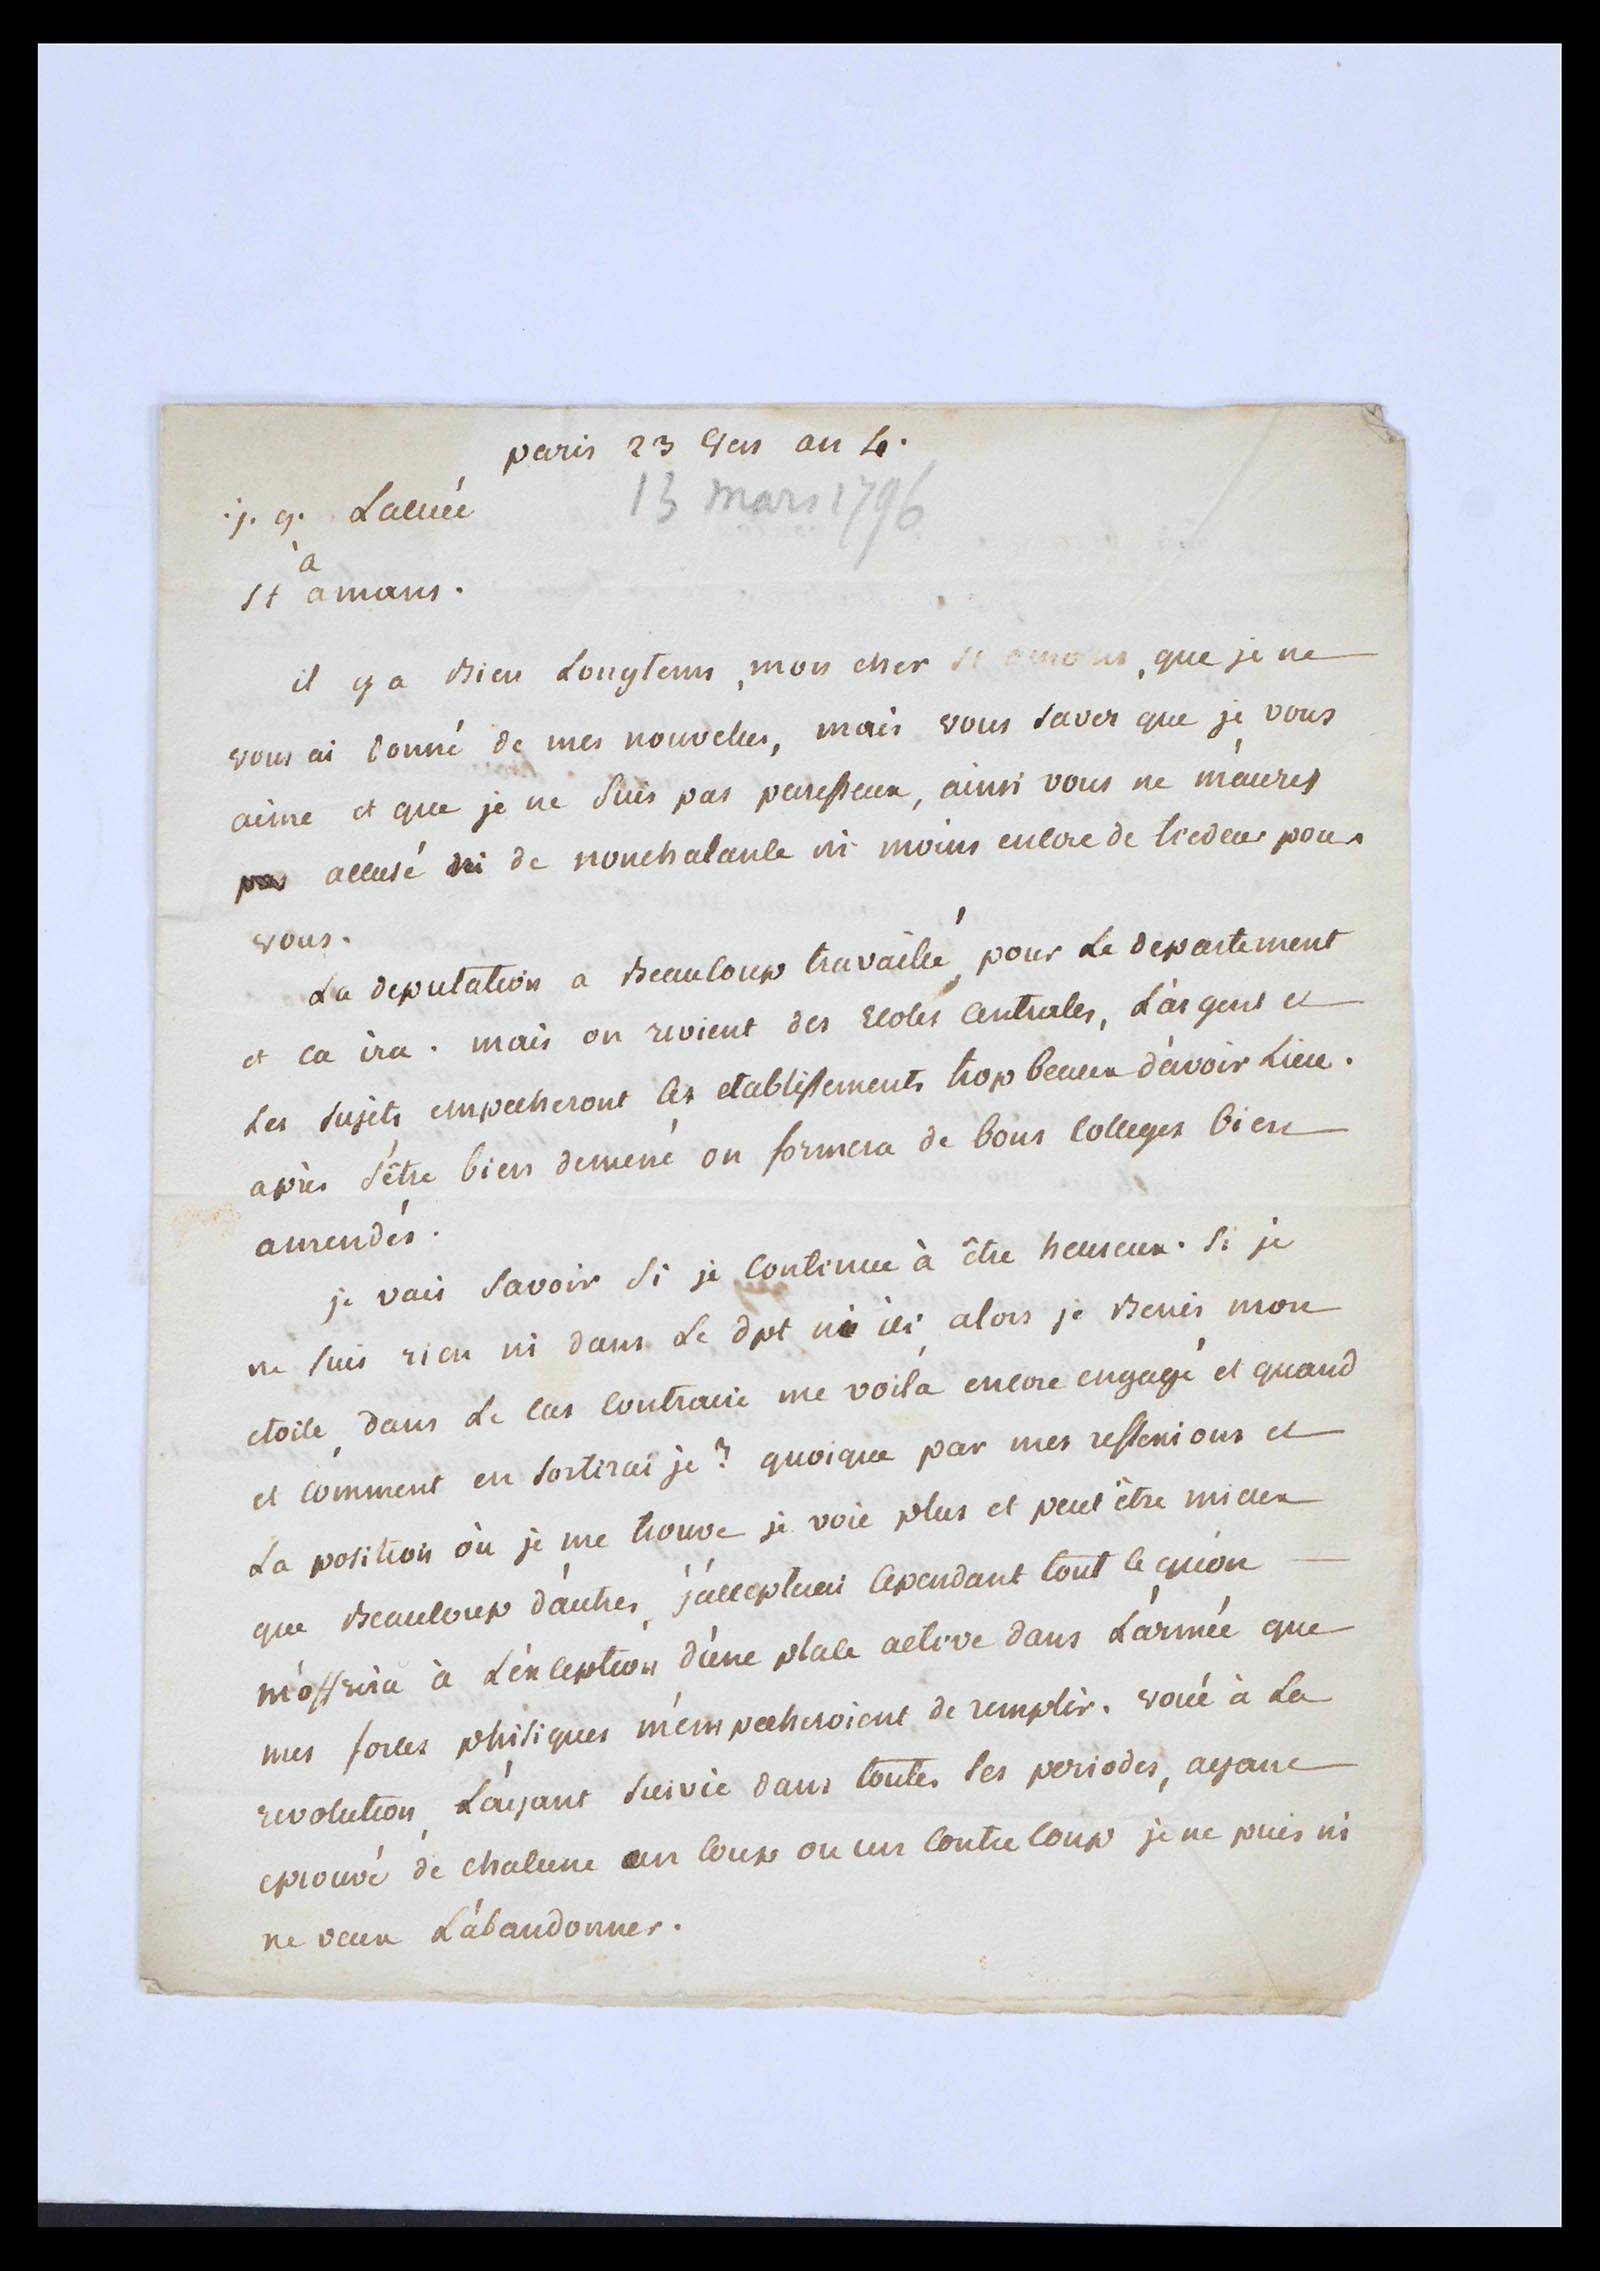 paris 23 Vens an 4.
13 mars 1796
j. g. Lacuée
à
St amans.
il y a Bien Longtems, mon cher St amans, que je ne
vous ai donné de mes nouvelles, mais vous savez que je vous
aime et que je ne suis pas paresseux, ainsi vous ne m'aurez
pas accusé ni de nonchalance ni moins encore de tiedeur pour
vous.
La deputation a Beaucoup travaillé, pour Le departement
et ca ira. mais on revient des Ecoles Centrales, L'argent et
Les sujets empecheront les etablissements trop beaux d'avoir Lieu.
après s'être bien demené on formera de bons Colleges bien
amendés.
je vais savoir si je continue à être heureux. si je
ne suis rien ni dans Le dpt ni ici alors je Benis mon
etoile, dans Le cas contraire me voilà encore engagé et quand
et comment en sortirai je? quoique par mes reflexions et
La position où je me trouve je voie plus et peut être mieux
que Beaucoup d'autres, j'accepterai cependant tout ce qu'on
m'offrira à L'exception d'une place active dans L'armée que
mes forces phisiques m'empecheroient de remplir. voué à La
revolution, L'ayant suivie dans toutes ses periodes, ayant
eprouvé de chacune un coup ou un contre coup je ne puis ni
ne veux L'abandonner.